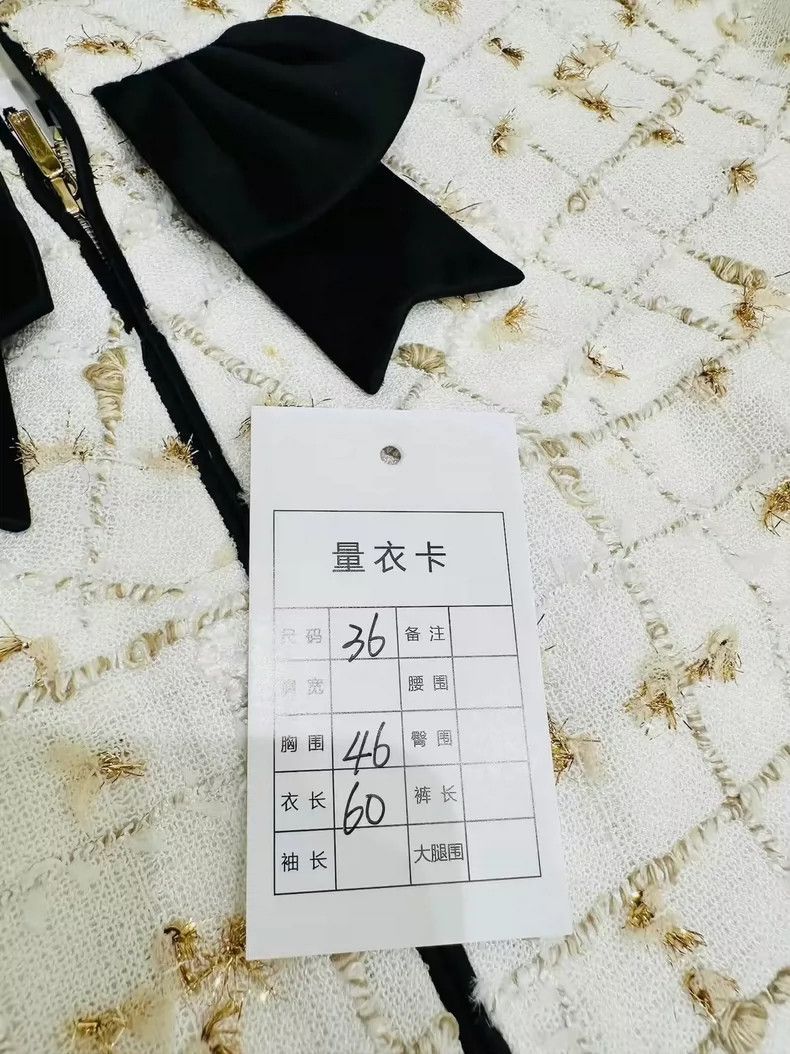 量衣卡
尺码 36 备注
肩宽 腰围
胸围 46 臀围
衣长 60 裤长
袖长 大腿围